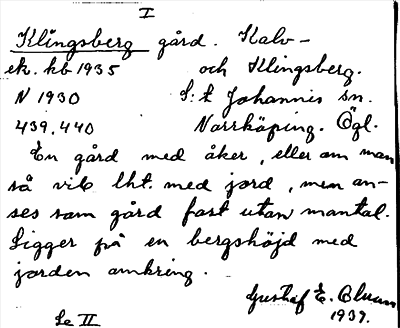 I
Klingsberg gård. Kalv-
ek. kb 1935 och Klingsberg.
N 1930 S:t Johannis sn.
439,440 Norrköping. Ögl.
En gård med åker, eller om man
så vill lht. med jord, men an-
ses som gård fast utan mantal.
Ligger på en bergshöjd med
jorden omkring.
Gustaf E. Bluum
1937.
Se II